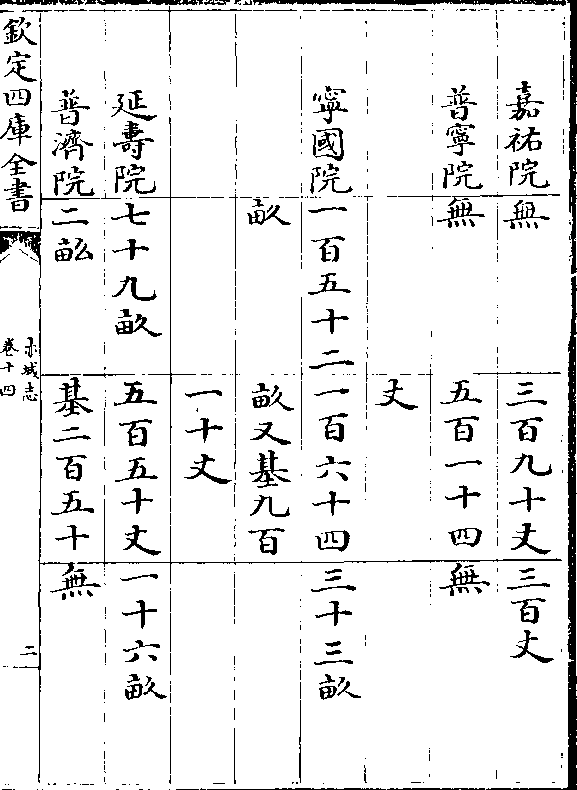 嘉祐院 無 三百九十丈 三百丈
普寧院 無 五百一十四 無
丈
寧國院 一百五十二 一百六十四 三十三畝
畝 畝又基九百
一十丈
延壽院 七十九畝 五百五十丈 一十六畝
普濟院 二畝 基二百五十 無
欽定四庫全書
赤城志
卷十四
二